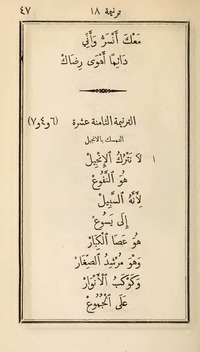 ٤٧
ترنيمة ١٨
مَعْكَ أُنْسَرُّ وَأَنِّي
دَائِمًا أَهْوَى رِضَاكْ
الترنيمة الثامنة عشرة (٦و٤و٧)
التمسك بالانجيل
١ لاَ نَتْرُكُ ٱلإِنْجِيلْ
هُوَ ٱلنَّفُوعْ
لِأَنَّهُ ٱلسَّبِيلْ
إِلَى يَسُوعْ
هُوَ عَصَا ٱلْكِبَارْ
وَهْوَ مُرْشِدُ ٱلصِّغَارْ
وَكَوْكَبُ ٱلْأَنْوَارْ
عَلَى ٱلْجُمُوعْ